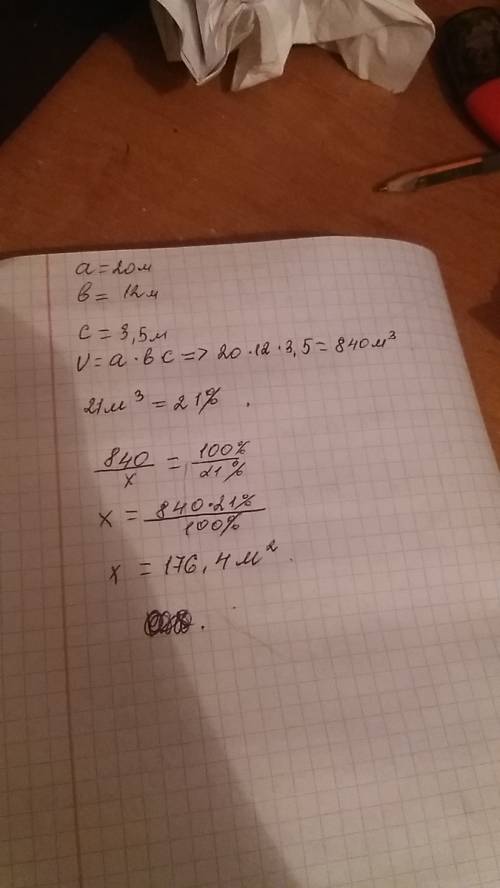 a = 20м
в = 12м
c = 3,5м
V = a · в c => 20 · 12 · 3,5 = 840м³
21м³ = 21% .
840/x = 100%/21%
x = 840·21%/100%
x = 176,4 м² .